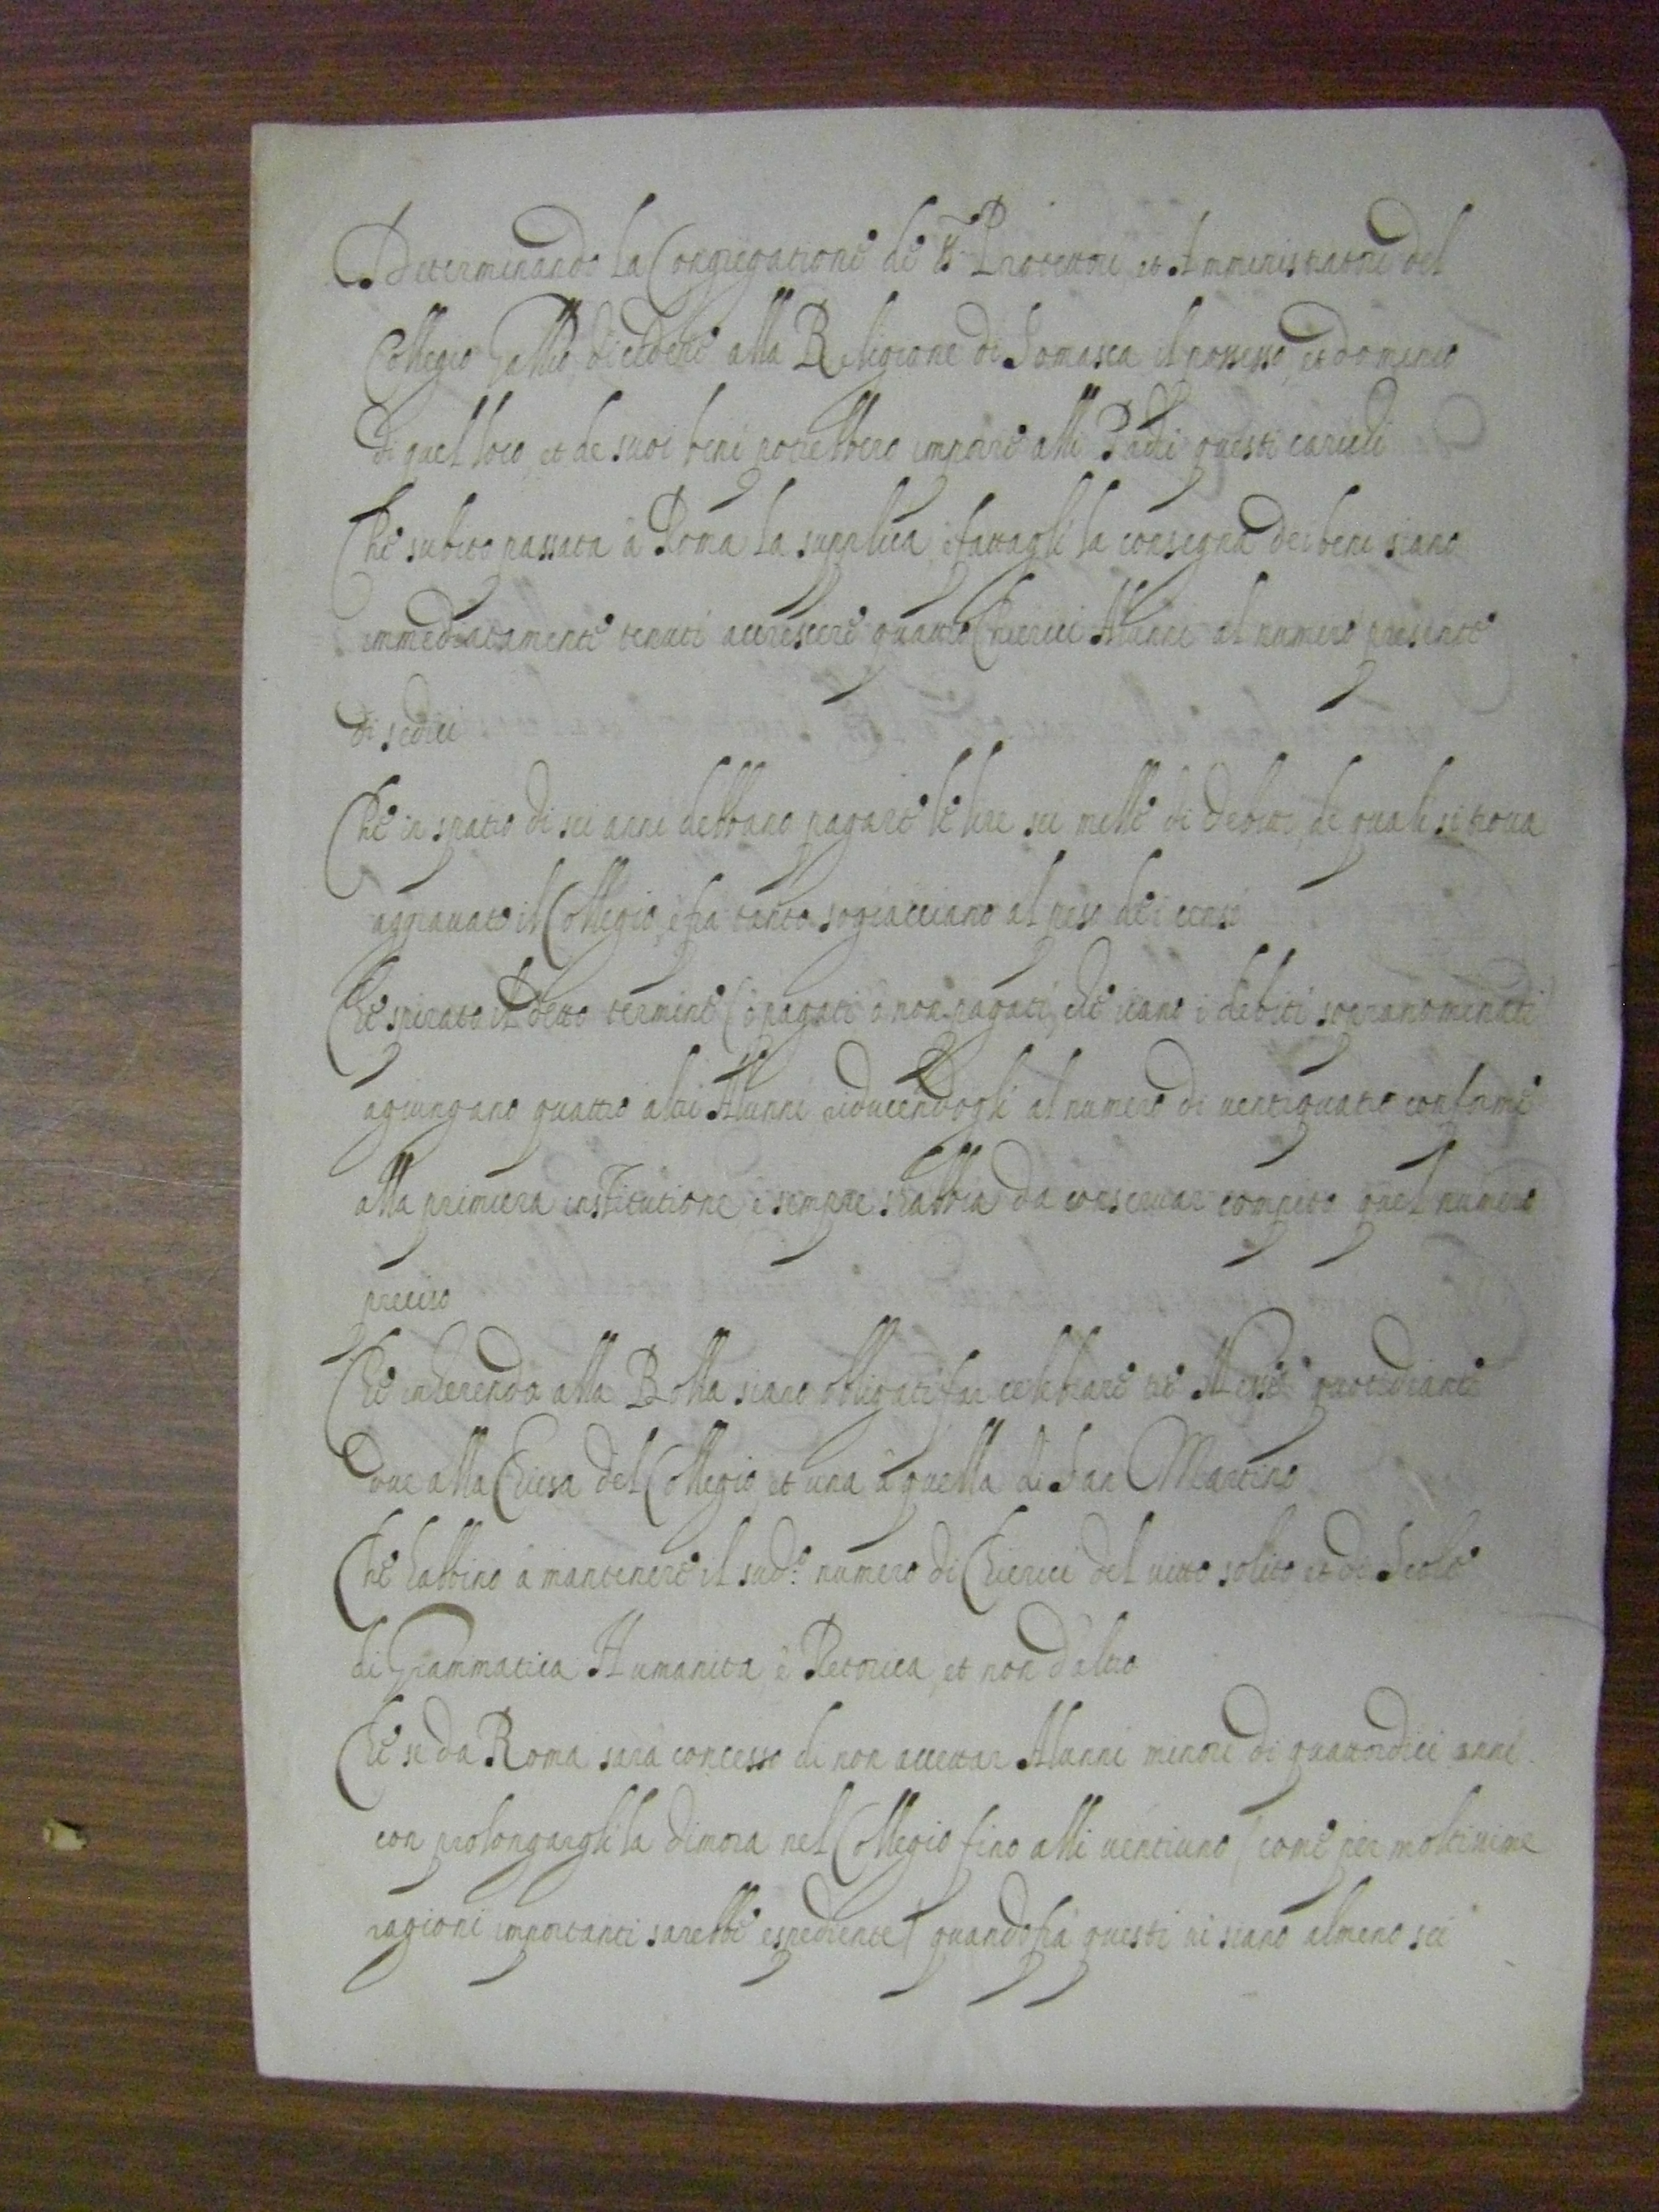 Determinando la Congregatione de SS.ri Protettori, et Amministratori del
Collegio Gallio, di cedere alla Religione di Somasca il possesso, et dominio
di quel loco, et de suoi beni potrebbero imporre alli Padri questi carichi
Che subito passata à Roma la supplica, è fattagli la consegna dei beni siano
immediatamente tenuti accrescere quattro Chierici Alunni al numero presente
di sedici
Che in spatio di sei anni debbano pagare le lire sei mille di debito, de quali si troua
aggrauato il Collegio, è fra tanto sogiacciano al peso dei censi
Che spirato il detto termine (ò pagati ò non pagati, che siano i debiti sopranominati
agiungano quattro altri Alunni riducendogli al numero di uentiquatro conforme
alla primiera institutione, è sempre s'habbia da conseruar compito quel numero
preciso
Che inherendo alla Bolla siano obligati far celebrare tre Messe quotidiane
Due alla Chiesa del Collegio, et una à quella di San Martino
Che habbino à mantenere il sud.º numero di Chierici del uitto solito, et di Scole
di Grammatica Humanita, è Retorica, et non d'altro
Che se da Roma sarà concesso di non accettar Alunni minori di quattordici anni
con prolongargli la dimora nel Collegio fino alli uentiuno (come per moltissime
ragioni importanti sarebbe espediente) quando frà questi ui siano almeno sei